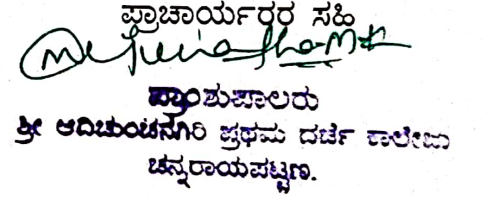 ಪ್ರಾಚಾರ್ಯರರ ಸಹಿ
ಪ್ರಾಂಶುಪಾಲರು
ಶ್ರೀ ಆದಿಚುಂಚನಗಿರಿ ಪ್ರಥಮ ದರ್ಜೆ ಕಾಲೇಜು
ಚನ್ನರಾಯಪಟ್ಟಣ.